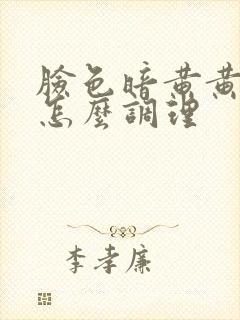 臉色暗黃黃
怎麼調理
李孝廉